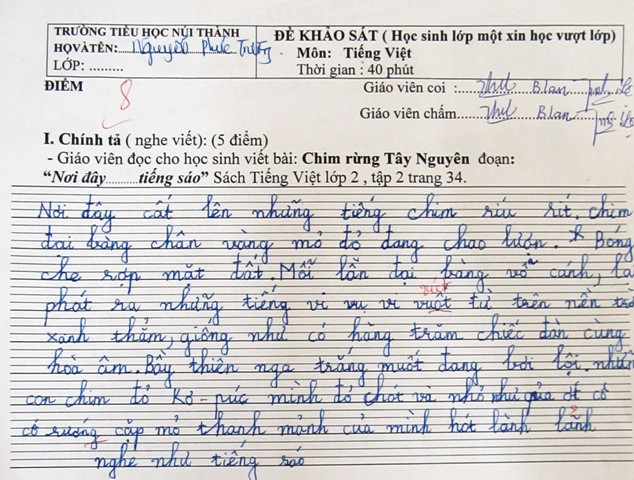 TRƯỜNG TIỂU HỌC NÚI THÀNH
HỌVÀTÊN: Nguyễn Phúc
LỚP: .........
ĐỀ KHẢO SÁT ( Học sinh lớp một xin học vượt lớp)
Môn: Tiếng Việt
Thời gian : 40 phút
ĐIỂM
8
Giáo viên coi :
Giáo viên chấm
I. Chính tả ( nghe viết): (5 điểm)
- Giáo viên đọc cho học sinh viết bài: Chim rừng Tây Nguyên đoạn:
“Nơi đây.........tiếng sáo” Sách Tiếng Việt lớp 2 , tập 2 trang 34.
Nơi đây cất lên những tiếng chim ríu rít. chim
đại bàng chân vàng mỏ đỏ đang chao lượn. * Bóng
che rợp mắt đất. Mỗi lần đại bàng vỗ cánh, lại
phát ra những tiếng vi vụ vi vuột từ trên nền trời
xanh thẳm, giống như có hàng trăm chiếc đàn cùng
hoà âm. Bầy thiên nga trắng muốt đang bơi lội. những
con chim đỏ Kơ-púc mình đỏ chót và nhỏ như quả ớt cố
cố rướng cặp mỏ thanh mảnh của mình hót lành lảnh
nghe như tiếng sáo